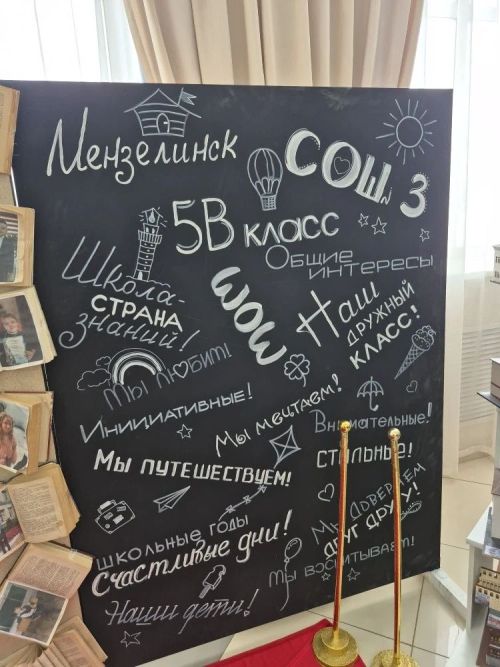 Мензелинск
СОШ № 3
5В класс
Общие
интересы
Школа-
страна
знаний!
WOW
Наш
дружный
класс!
Мы любит!
Инициативные!
Мы мечтаем!
Внимательные!
Мы путешествуем!
Стильные!
Мы доверяем
друг другу!
школьные годы
счастливые дни!
Мы воспитывает!
Наши дети!